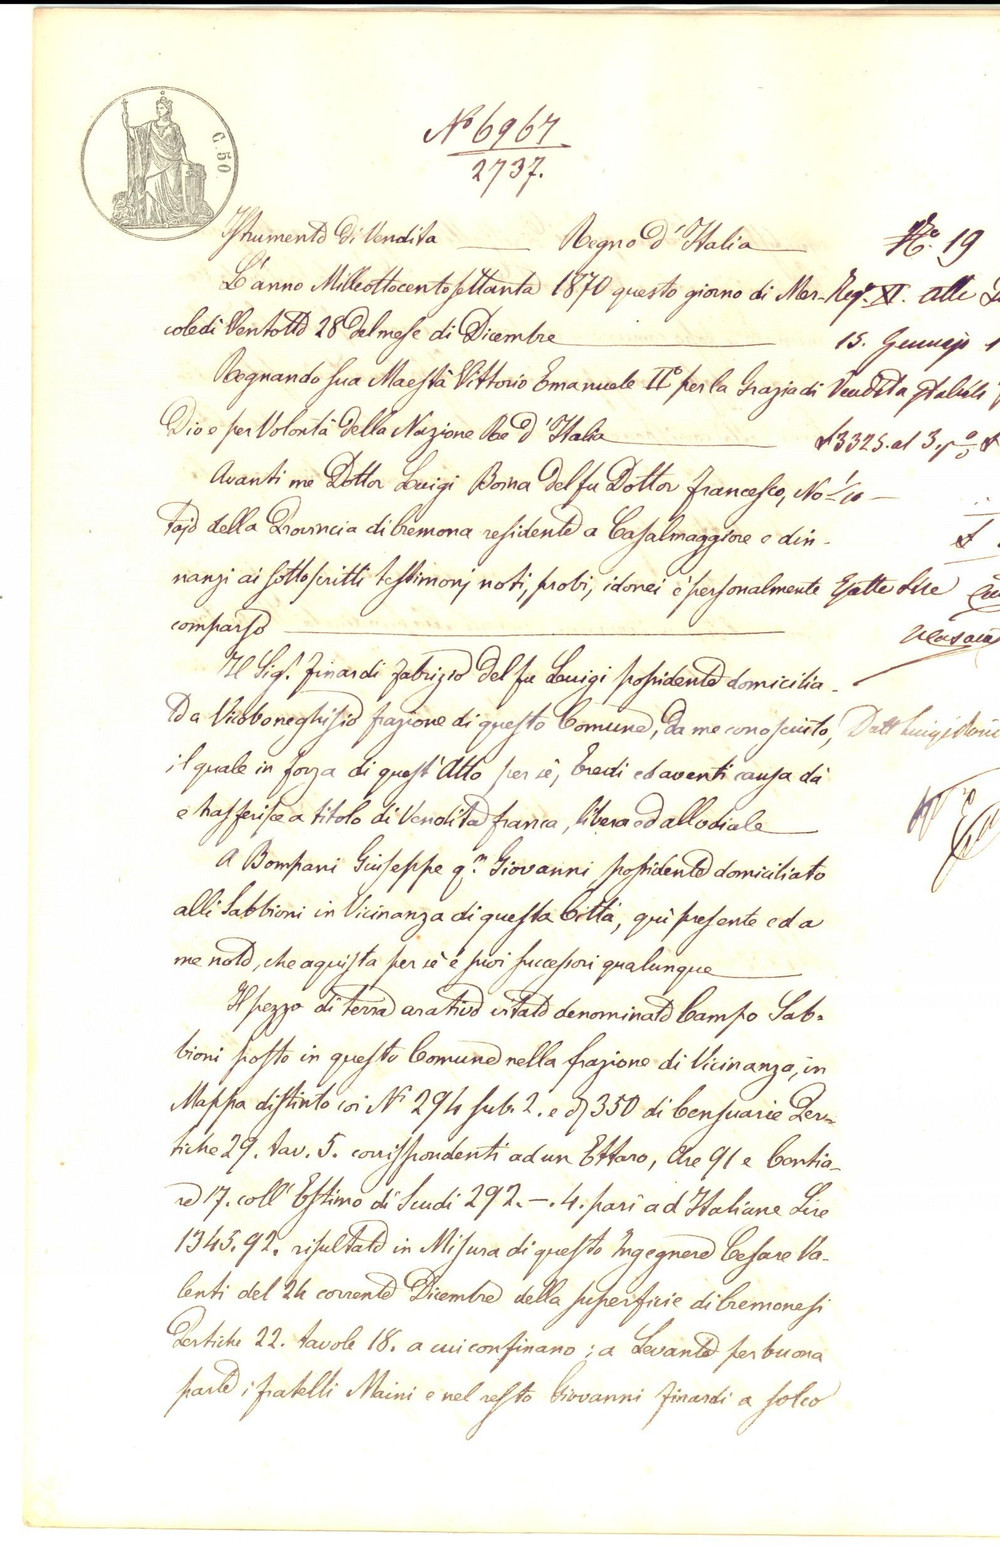 C. 50
No 6967
2737.
Istrumento di Vendita — Regno d'Italia —
L'anno Milleottocentosettanta 1870 questo giorno di Mer-
coledi Ventotto 28 del mese di Dicembre
Regnando sua Maestà Vittorio Emanuele II° per la Grazia di
Dio e per Volontà della Nazione Re d'Italia
Avanti me Dottor Luigi Borna del fu Dottor Francesco, No-
tajo della Provincia di Cremona residente a Casalmaggiore e din-
nanzi ai sottoscritti testimonj noti, probi, idonei è personalmente
comparso
Il Sigr. Finardi Fabrizio del fu Luigi possidente domicilia-
to a Vicoboneghisio frazione di questo Comune, da me conosciuto,
il quale in forza di quest'Atto per sè, Eredi ed aventi causa dà
e trasferisce a titolo di Vendita franca, libera ed allodiale
A Bompani Giuseppe qm Giovanni possidente domiciliato
alli Sabbioni in Vicinanza di questa Città, quì presente ed a
me noto, che aquista per sè e suoi successori qualunque
Il pezzo di terra arativo vitato denominato Campo Sab-
bioni posto in questo Comune nella frazione di Vicinanza, in
Mappa distinto coi Ni 294 sub. 2. e 350 di Censuarie Per-
tiche 29. tav. 5. corrispondenti ad un Ettaro, Are 91 e Centia-
re 17. coll'Estimo di Scudi 292. —. 4. pari ad Italiane Lire
1345.92. risultato in Misura di questo Ingegnere Cesare Va-
lenti del 24 corrente Dicembre della superficie di Cremonesi
Pertiche 22. tavole 18. a cui confinano; a Levante per buona
parte i fratelli Maini e nel resto Giovanni Finardi a solco
No. 19
Regto XI. Atti
15. Gennajo 1
Vendita stabili
3325. al 3. p%
Esatte Lire
Dott Luigi Borna